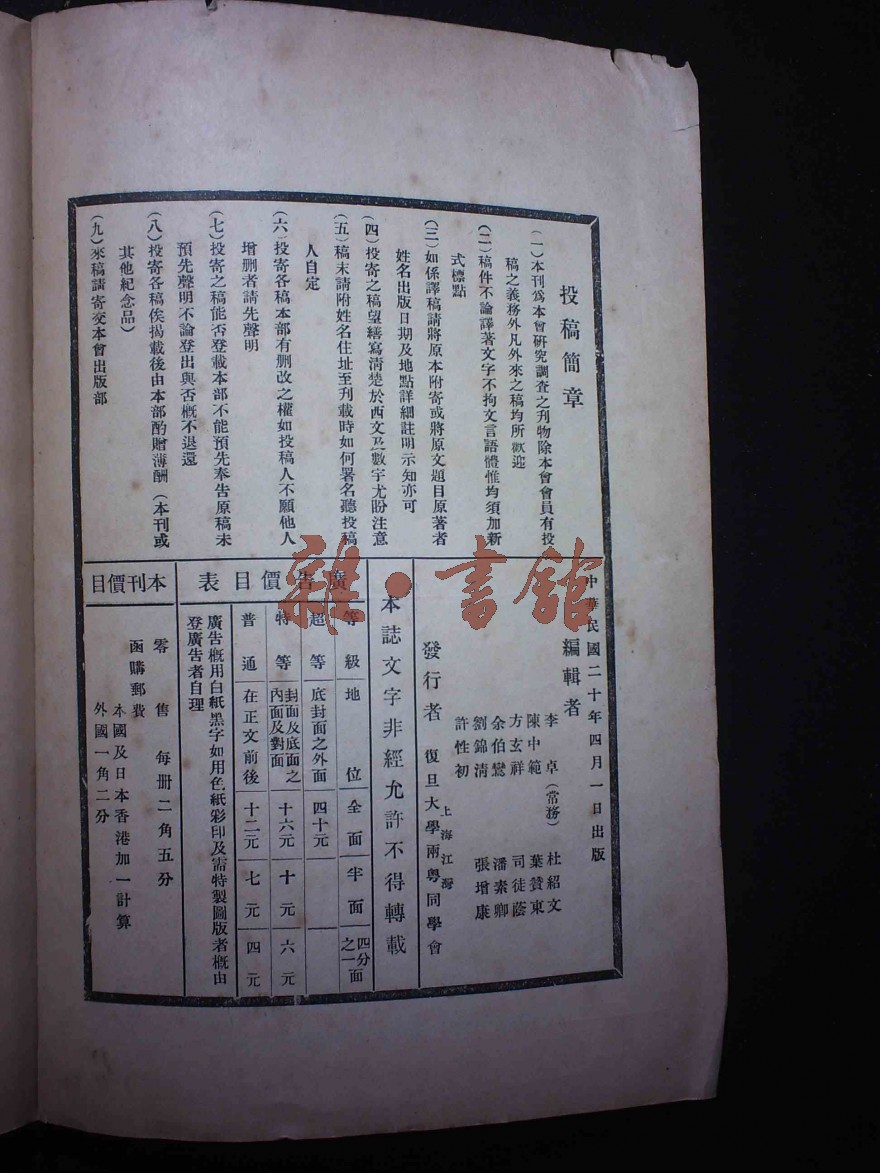 投稿簡章
（一）本刊爲本會研究調查之刊物除本會會員有投
稿之義務外凡外來之稿均所歡迎
（二）稿件不論譯著文字不拘文言語體惟均須加新
式標點
（三）如係譯稿請將原本附寄或將原文題目原著者
姓名出版日期及地點詳細註明示知亦可
（四）投寄之稿望繕寫淸楚於西文及數字尤盼注意
（五）稿末請附姓名住址至刊載時如何署名聽投稿
人自定
（六）投寄各稿本部有刪改之權如投稿人不願他人
增刪者請先聲明
（七）投寄之稿能否登載本部不能預先奉告原稿未
預先聲明不論登出與否槪不退還
（八）投寄各稿俟揭載後由本部酌贈薄酬（本刊或
其他紀念品）
（九）來稿請寄交本會出版部
中華民國二十年四月一日出版
編輯者
李卓（常務）
杜紹文
陳中範
葉贊東
方玄祥
司徒蔭
余伯鸞
潘素卿
劉錦淸
張增康
許性初
發行者
上海江灣
復旦大學兩粤同學會
本誌文字非經允許不得轉載
廣告價目表
等級
地位
全面
半面
四分之一面
超等
底封面之外面
四十元
特等
封面及底面之內面及對面
十六元
十元
六元
普通
在正文前後
十二元
七元
四元
廣告槪用白紙黑字如用色紙彩印及需特製圖版者槪由
登廣告者自理
本刊價目
零售
每冊二角五分
函購郵費
本國及日本香港加一計算
外國一角二分
雜·書館